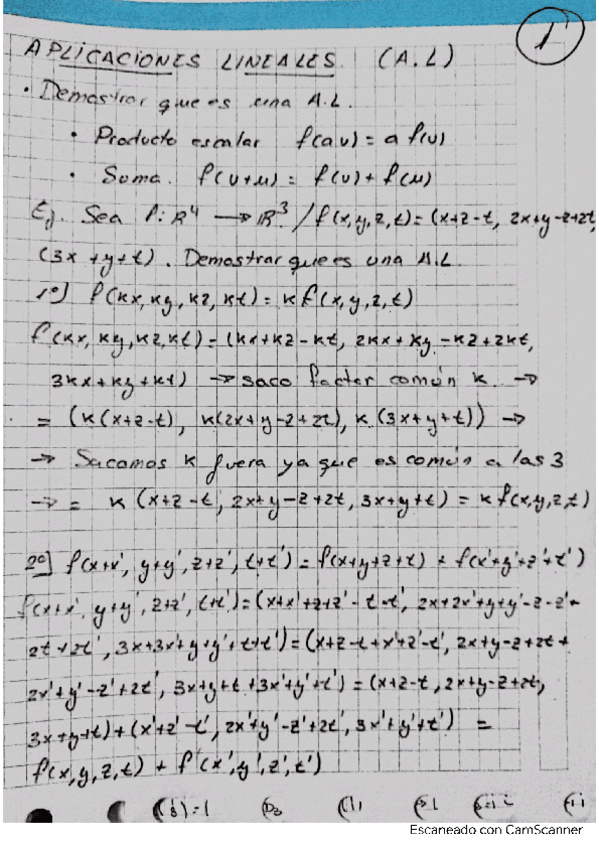 1
APLICACIONES LINEALES (A.L)
· Demostrar que es una A.L.
· Producto escalar f(av) = a f(v)
· Suma. f(v+u) = f(v) + f(u)
Ej. Sea f: R⁴ → R³ / f(x,y,z,t) = (x+z-t, 2x+y-z+2t,
(3x+y+t). Demostrar que es una A.L.
1º] f(kx, ky, kz, kt) = k f(x,y,z,t)
f(kx, ky, kz, kt) = (kx+kz-kt, 2kx+ky-kz+2kt,
3kx+ky+kt) → saco factor común k. →
= (k(x+z-t), k(2x+y-z+2t), k(3x+y+t)) →
→ Sacamos k fuera ya que es común a las 3
→ = k (x+z-t, 2x+y-z+2t, 3x+y+t) = k f(x,y,z,t)
2º] f(x+x', y+y', z+z', t+t') = f(x+y+z+t) + f(x'+y'+z'+t')
f(x+x', y+y', z+z', t+t') = (x+x'+z+z'-t-t', 2x+2x'+y+y'-z-z'+
2t+2t', 3x+3x'+y+y'+t+t') = (x+z-t+x'+z'-t', 2x+y-z+2t+
2x'+y'-z'+2t', 3x+y+t+3x'+y'+t') = (x+z-t, 2x+y-z+2t,
3x+y+t) + (x'+z'-t', 2x'+y'-z'+2t', 3x'+y'+t') =
f(x,y,z,t) + f'(x',y',z',t')
Escaneado con CamScanner